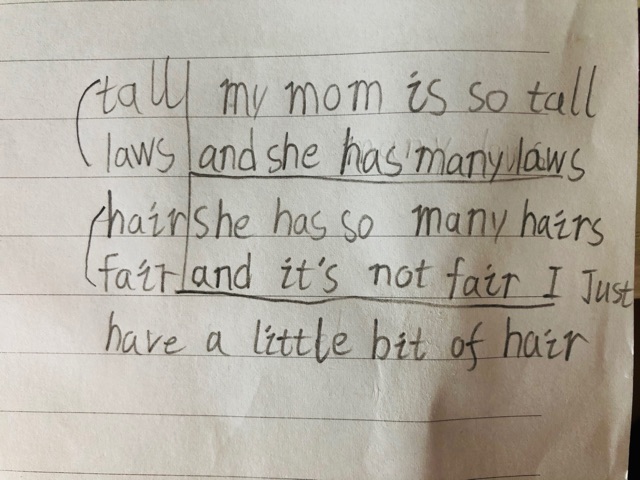 tall my mom is so tall
laws and she has many laws
hair she has so many hairs
fair and it's not fair I Just
have a little bit of hair